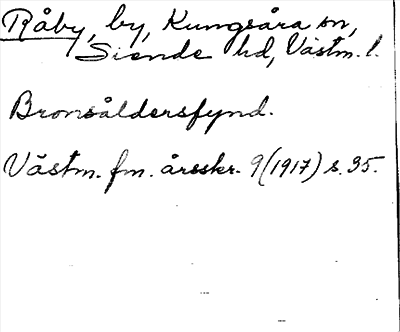 Råby, by, Kungsåra sn,
Siende hd, Västm. l.
Bronsåldersfynd.
Västm. fm. årsskr. 9 (1917) s. 35.